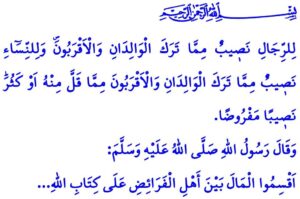 بِسْمِ اللهِ الرَّحْمٰنِ الرَّحِيمِ
لِلرِّجَالِ نَصِيبٌ مِمَّا تَرَكَ الْوَالِدَانِ وَالْاَقْرَبُونَۖ وَلِلنِّسَٓاءِ
نَصِيبٌ مِمَّا تَرَكَ الْوَالِدَانِ وَالْاَقْرَبُونَ مِمَّا قَلَّ مِنْهُ اَوْ كَثُرَۜ
نَصِيبًا مَفْرُوضًا.
وَقَالَ رَسُولُ اللهِ صَلَّى اللهُ عَلَيْهِ وَسَلَّمَ:
اَقْسِمُوا الْمَالَ بَيْنَ اَهْلِ الْفَرَائِضِ عَلَى كِتَابِ اللهِ...